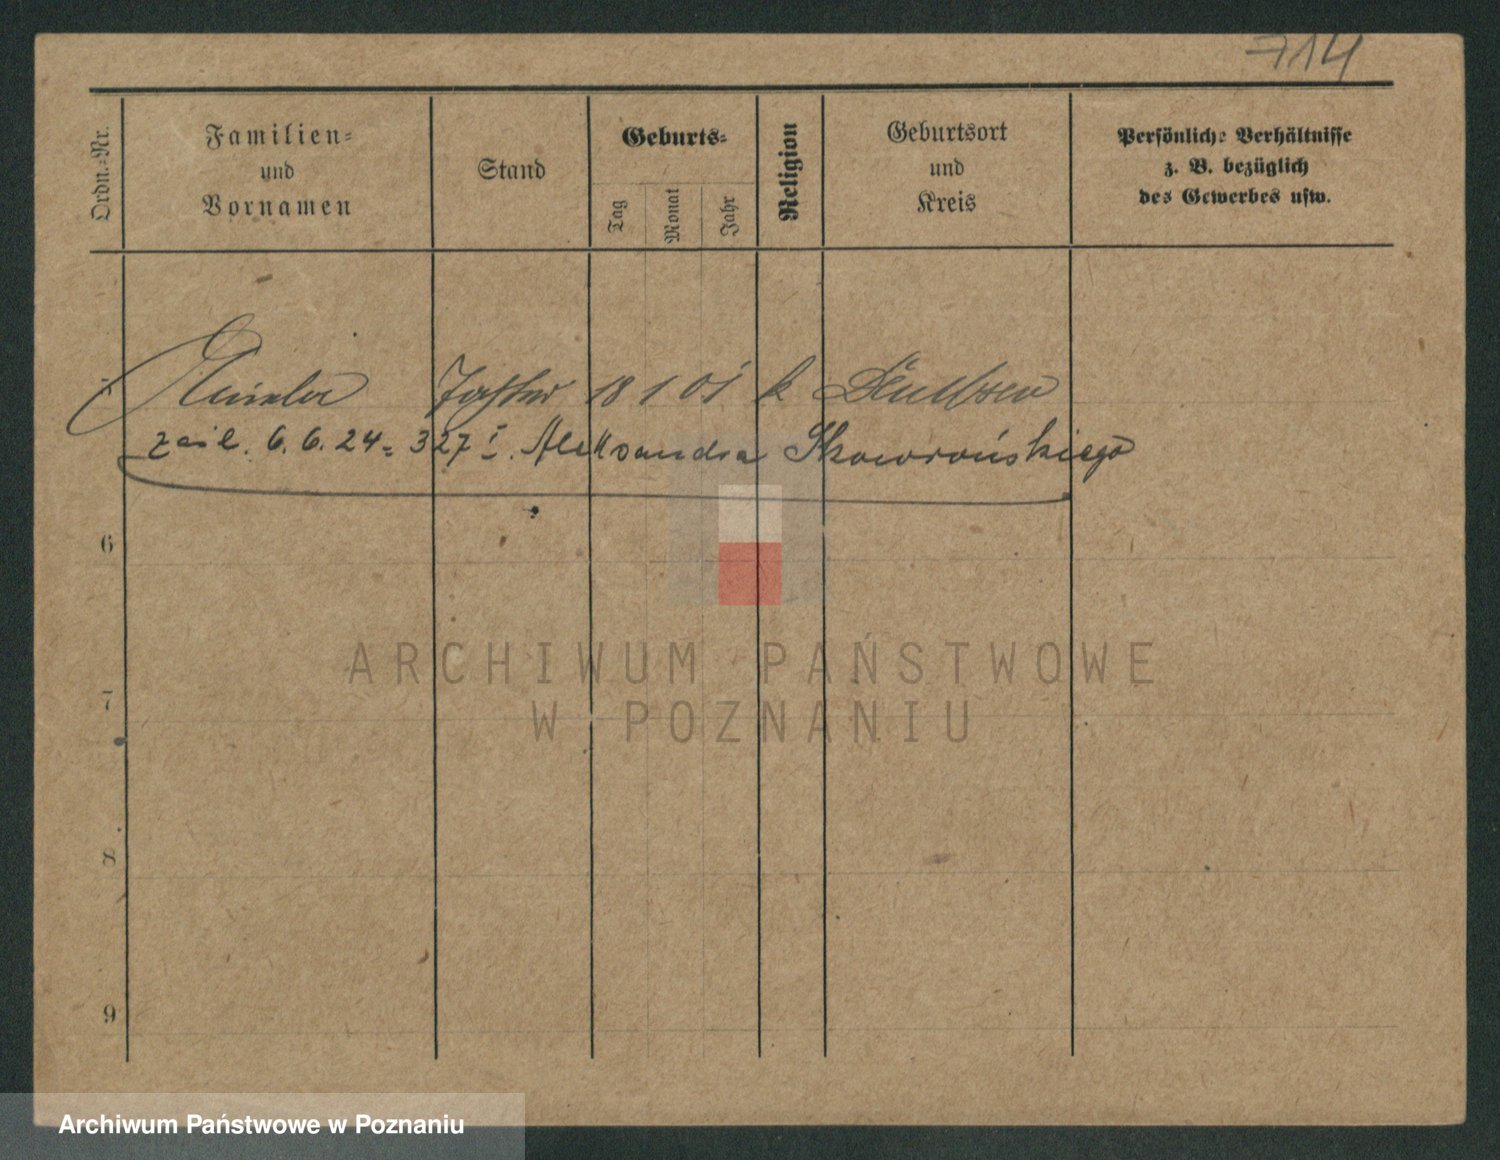 714
Ordn.-Nr.
Familien-
und
Vornamen
Stand
Geburts-
Tag
Monat
Jahr
Religion
Geburtsort
und
Kreis
Persönliche Verhältnisse
z. B. bezüglich
des Gewerbes usw.
18 1 01 k
zaśl. 6.6.24 = 327 I. Aleksandra Skowrońskiego
6
7
8
9
ARCHIWUM PAŃSTWOWE
W POZNANIU
Archiwum Państwowe w Poznaniu